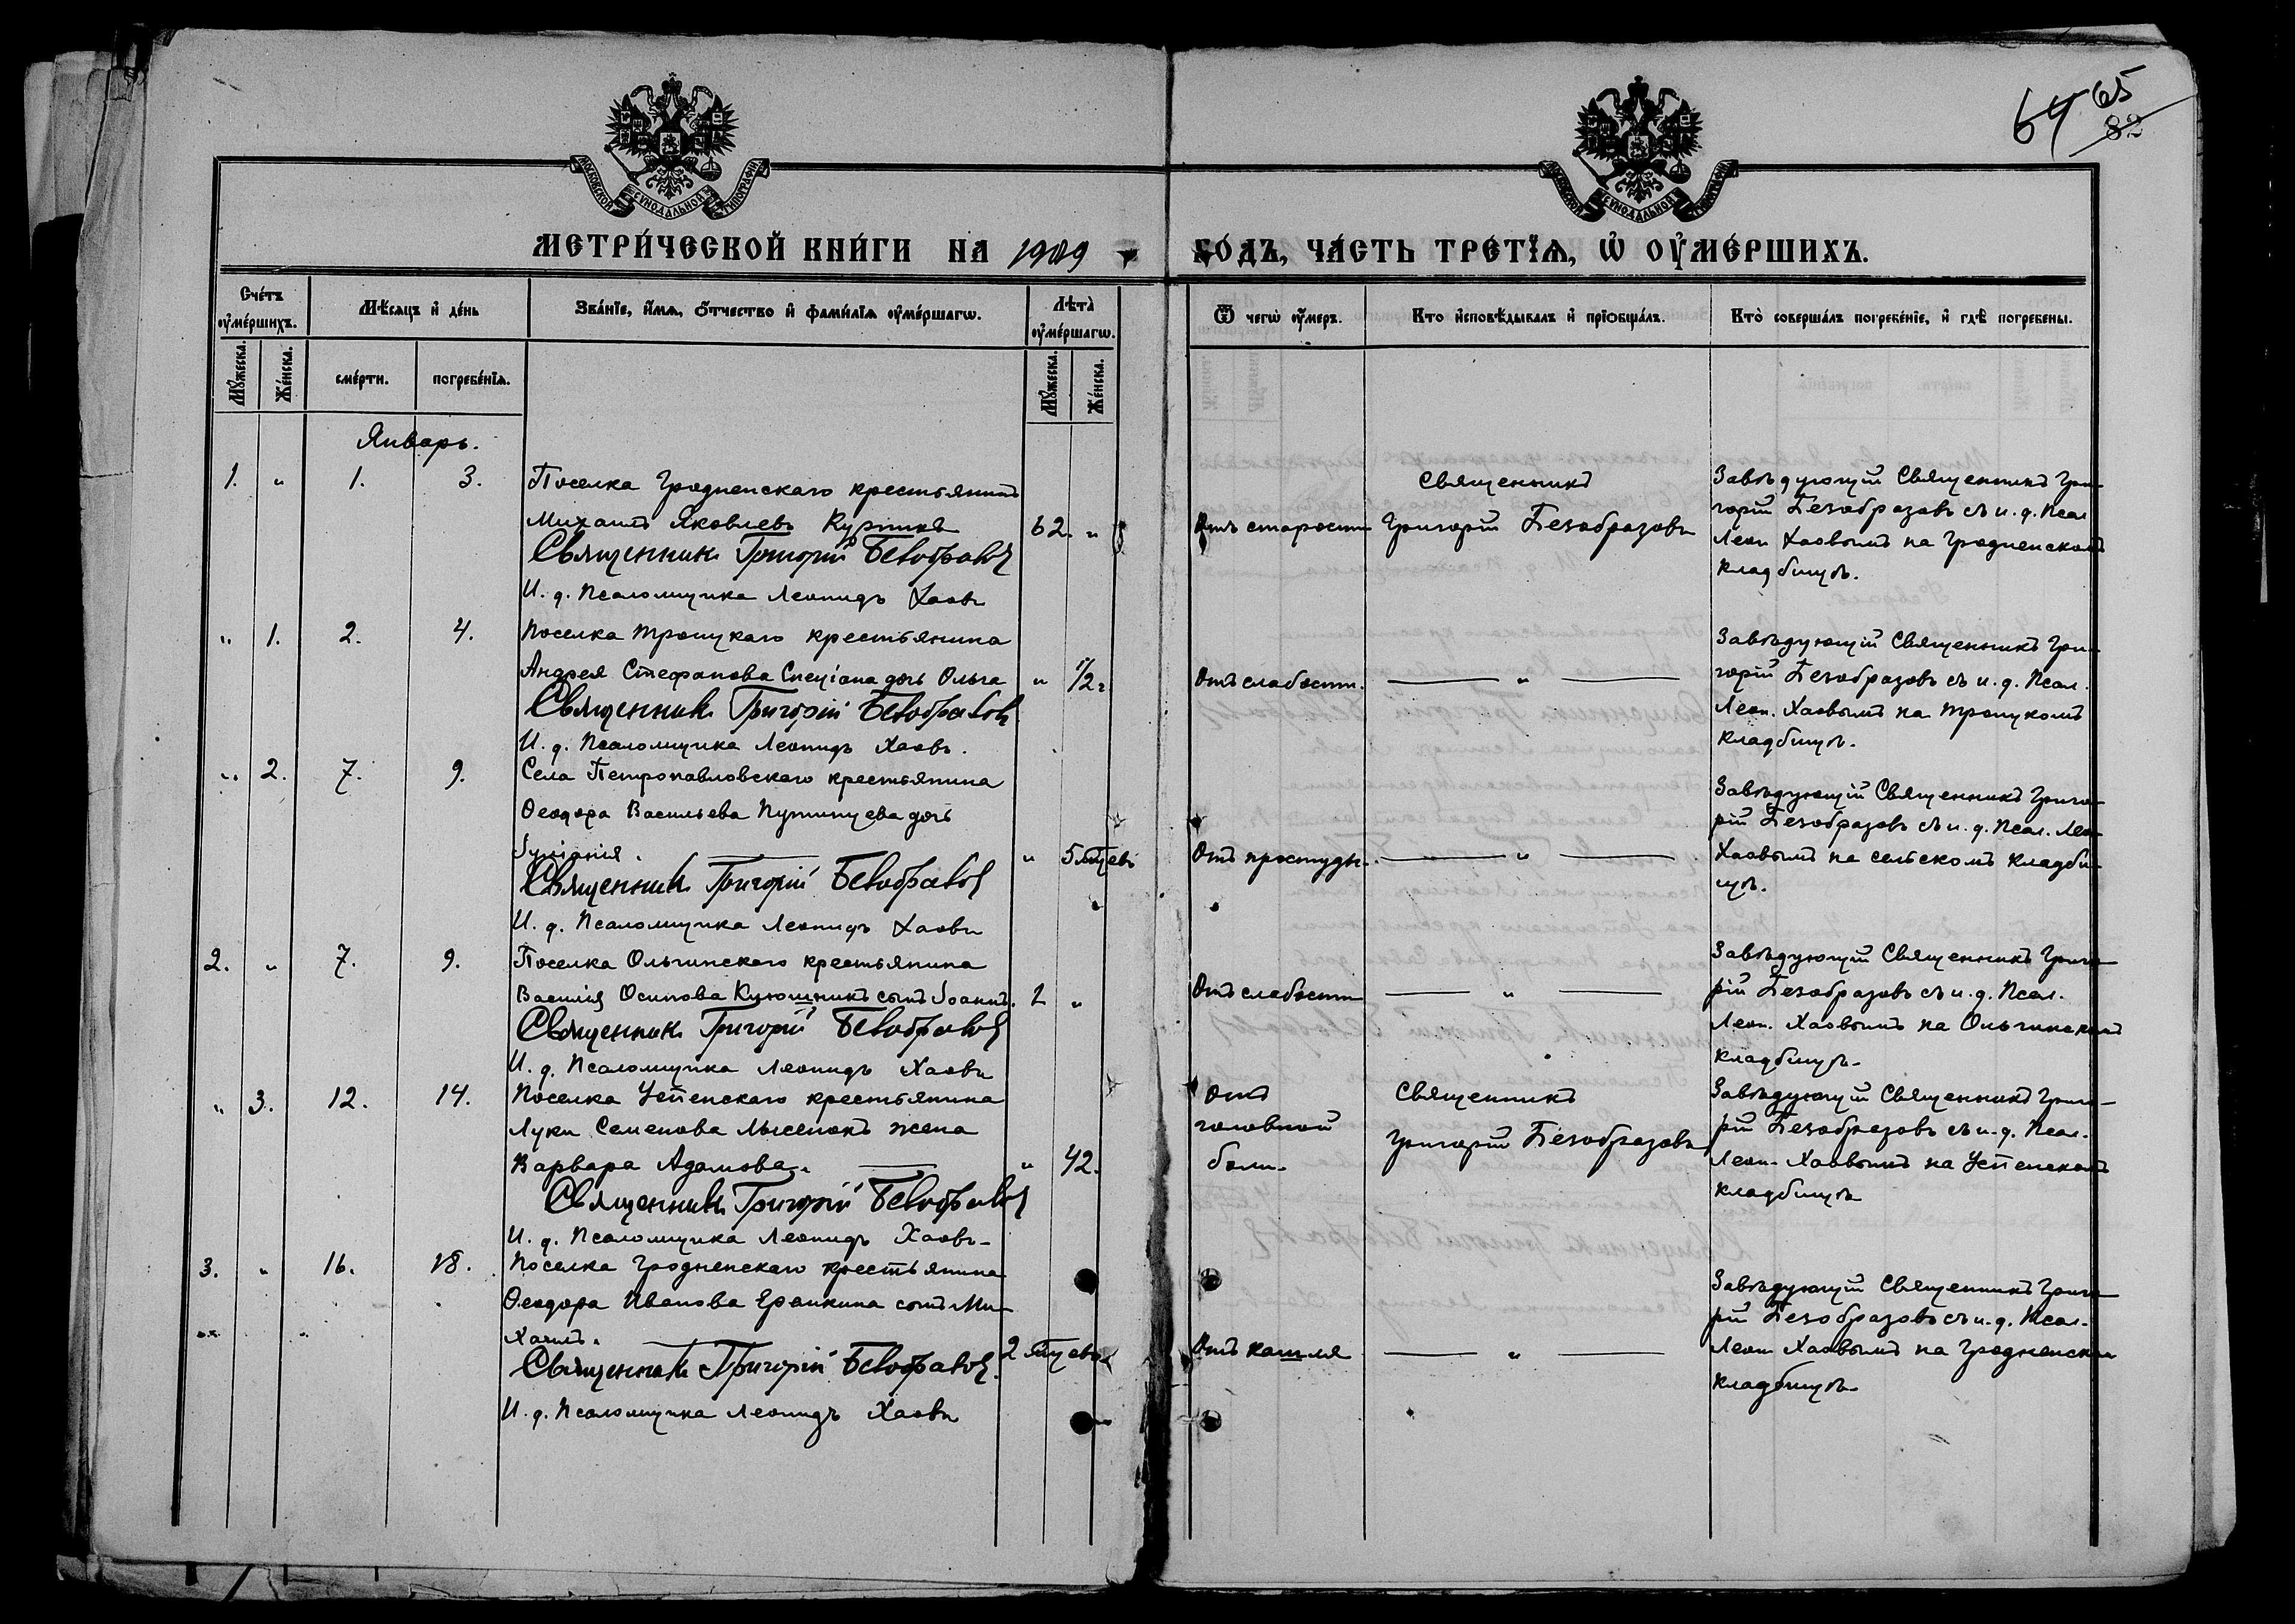 64 65
82
МОСКОВСКОЙ СУНОДАЛЬНОЙ ТИПОГРАФІИ
МОСКОВСКОЙ СУНОДАЛЬНОЙ ТИПОГРАФІИ
МЕТРИ́ЧЕСКОЙ КНИ́ГИ НА 1909
ГО́ДЪ, ЧА́СТЬ ТРЕ́ТІѦ, Ѡ҆ ОУ҆МЕ́РШИХЪ.
Сче́тъ оу҆ме́ршихъ.
Мѣ́сяцъ и҆ де́нь
Зва́нїе, и҆́мѧ, ѻ҆́тчество и҆ фами́лїѧ оу҆ме́ршагѡ.
Лѣта̀ оу҆ме́ршагѡ.
Ѿ чегѡ̀ оу҆́меръ.
Кто̀ и҆сповѣ́дывалъ и҆ прїѡбща́лъ.
Кто̀ соверша́лъ погребе́нїе, и҆ гдѣ̀ погребены.
Мꙋ́жеска.
Же́нска.
сме́рти.
погребе́нїѧ.
Мꙋ́жеска.
Же́нска.
Январь.
1. " 1. 3. Поселка Гродненскаго крестьянинъ
Михаилъ Яковлевъ 62. "
Священникъ Григорій Безобразовъ
И. д. Псаломщика Леонидъ Хаовъ
Отъ старости
Священникъ
Григорій Безобразовъ
Завѣдующій Священникъ Гри-
горій Безобразовъ съ и. д. Псал
Леон Хаовымъ на Гродненскомъ
кладбищѣ.
" 1. 2. 4. Поселка Троицкаго крестьянина
Андрея Стефанова дочь Ольга " 1/2 г
Священникъ Григорій Безобразовъ
И. д. Псаломщика Леонидъ Хаовъ.
Отъ слабости. — " —
Завѣдующій Священникъ Гри-
горій Безобразовъ съ и. д. Псал.
Леон. Хаовымъ на Троицкомъ
кладбищѣ.
" 2. 7. 9. Села Петропавловскаго крестьянина
Ѳеодора Васильева Путинцева дочь
Іуліанія. " 5 мѣсяцевъ
Священникъ Григорій Безобразовъ
И. д. Псаломщика Леонидъ Хаовъ
Отъ простуды. — " —
Завѣдующій Священникъ Григо-
рій Безобразовъ съ и. д. Псал. Лео
Хаовымъ на сельскомъ кладби-
щѣ.
2. " 7. 9. Поселка Ольгинскаго крестьянина
Василія Осипова сынъ Іоаннъ. 2 "
Священникъ Григорій Безобразовъ
И. д. Псаломщика Леонидъ Хаовъ
Отъ слабости — " —
Завѣдующій Священникъ Григо-
рій Безобразовъ съ и. д. Псал.
Леон. Хаовымъ на Ольгинскомъ
кладбищѣ.
" 3. 12. 14. Поселка Успенскаго крестьянина
Луки Семенова Мысенокъ жена
Варвара Адамова. " 42.
Священникъ Григорій Безобразовъ
И. д. Псаломщика Леонидъ Хаовъ
Отъ
головной
боли.
Священникъ
Григорій Безобразовъ
Завѣдующій Священникъ Григо-
рій Безобразовъ съ и. д. Псал.
Леон. Хаовымъ на Успенскомъ
кладбищѣ
3. " 16. 18. Поселка Гродненскаго крестьянина
Ѳеодора Иванова Еранкина сынъ Ми-
хаилъ. 2 мѣсяцевъ
Священникъ Григорій Безобразовъ.
И. д. Псаломщика Леонидъ Хаовъ
Отъ кашля — " —
Завѣдующій Священникъ Григо-
рій Безобразовъ съ и. д. Псал.
Леон Хаовымъ на Гродненском
кладбищѣ